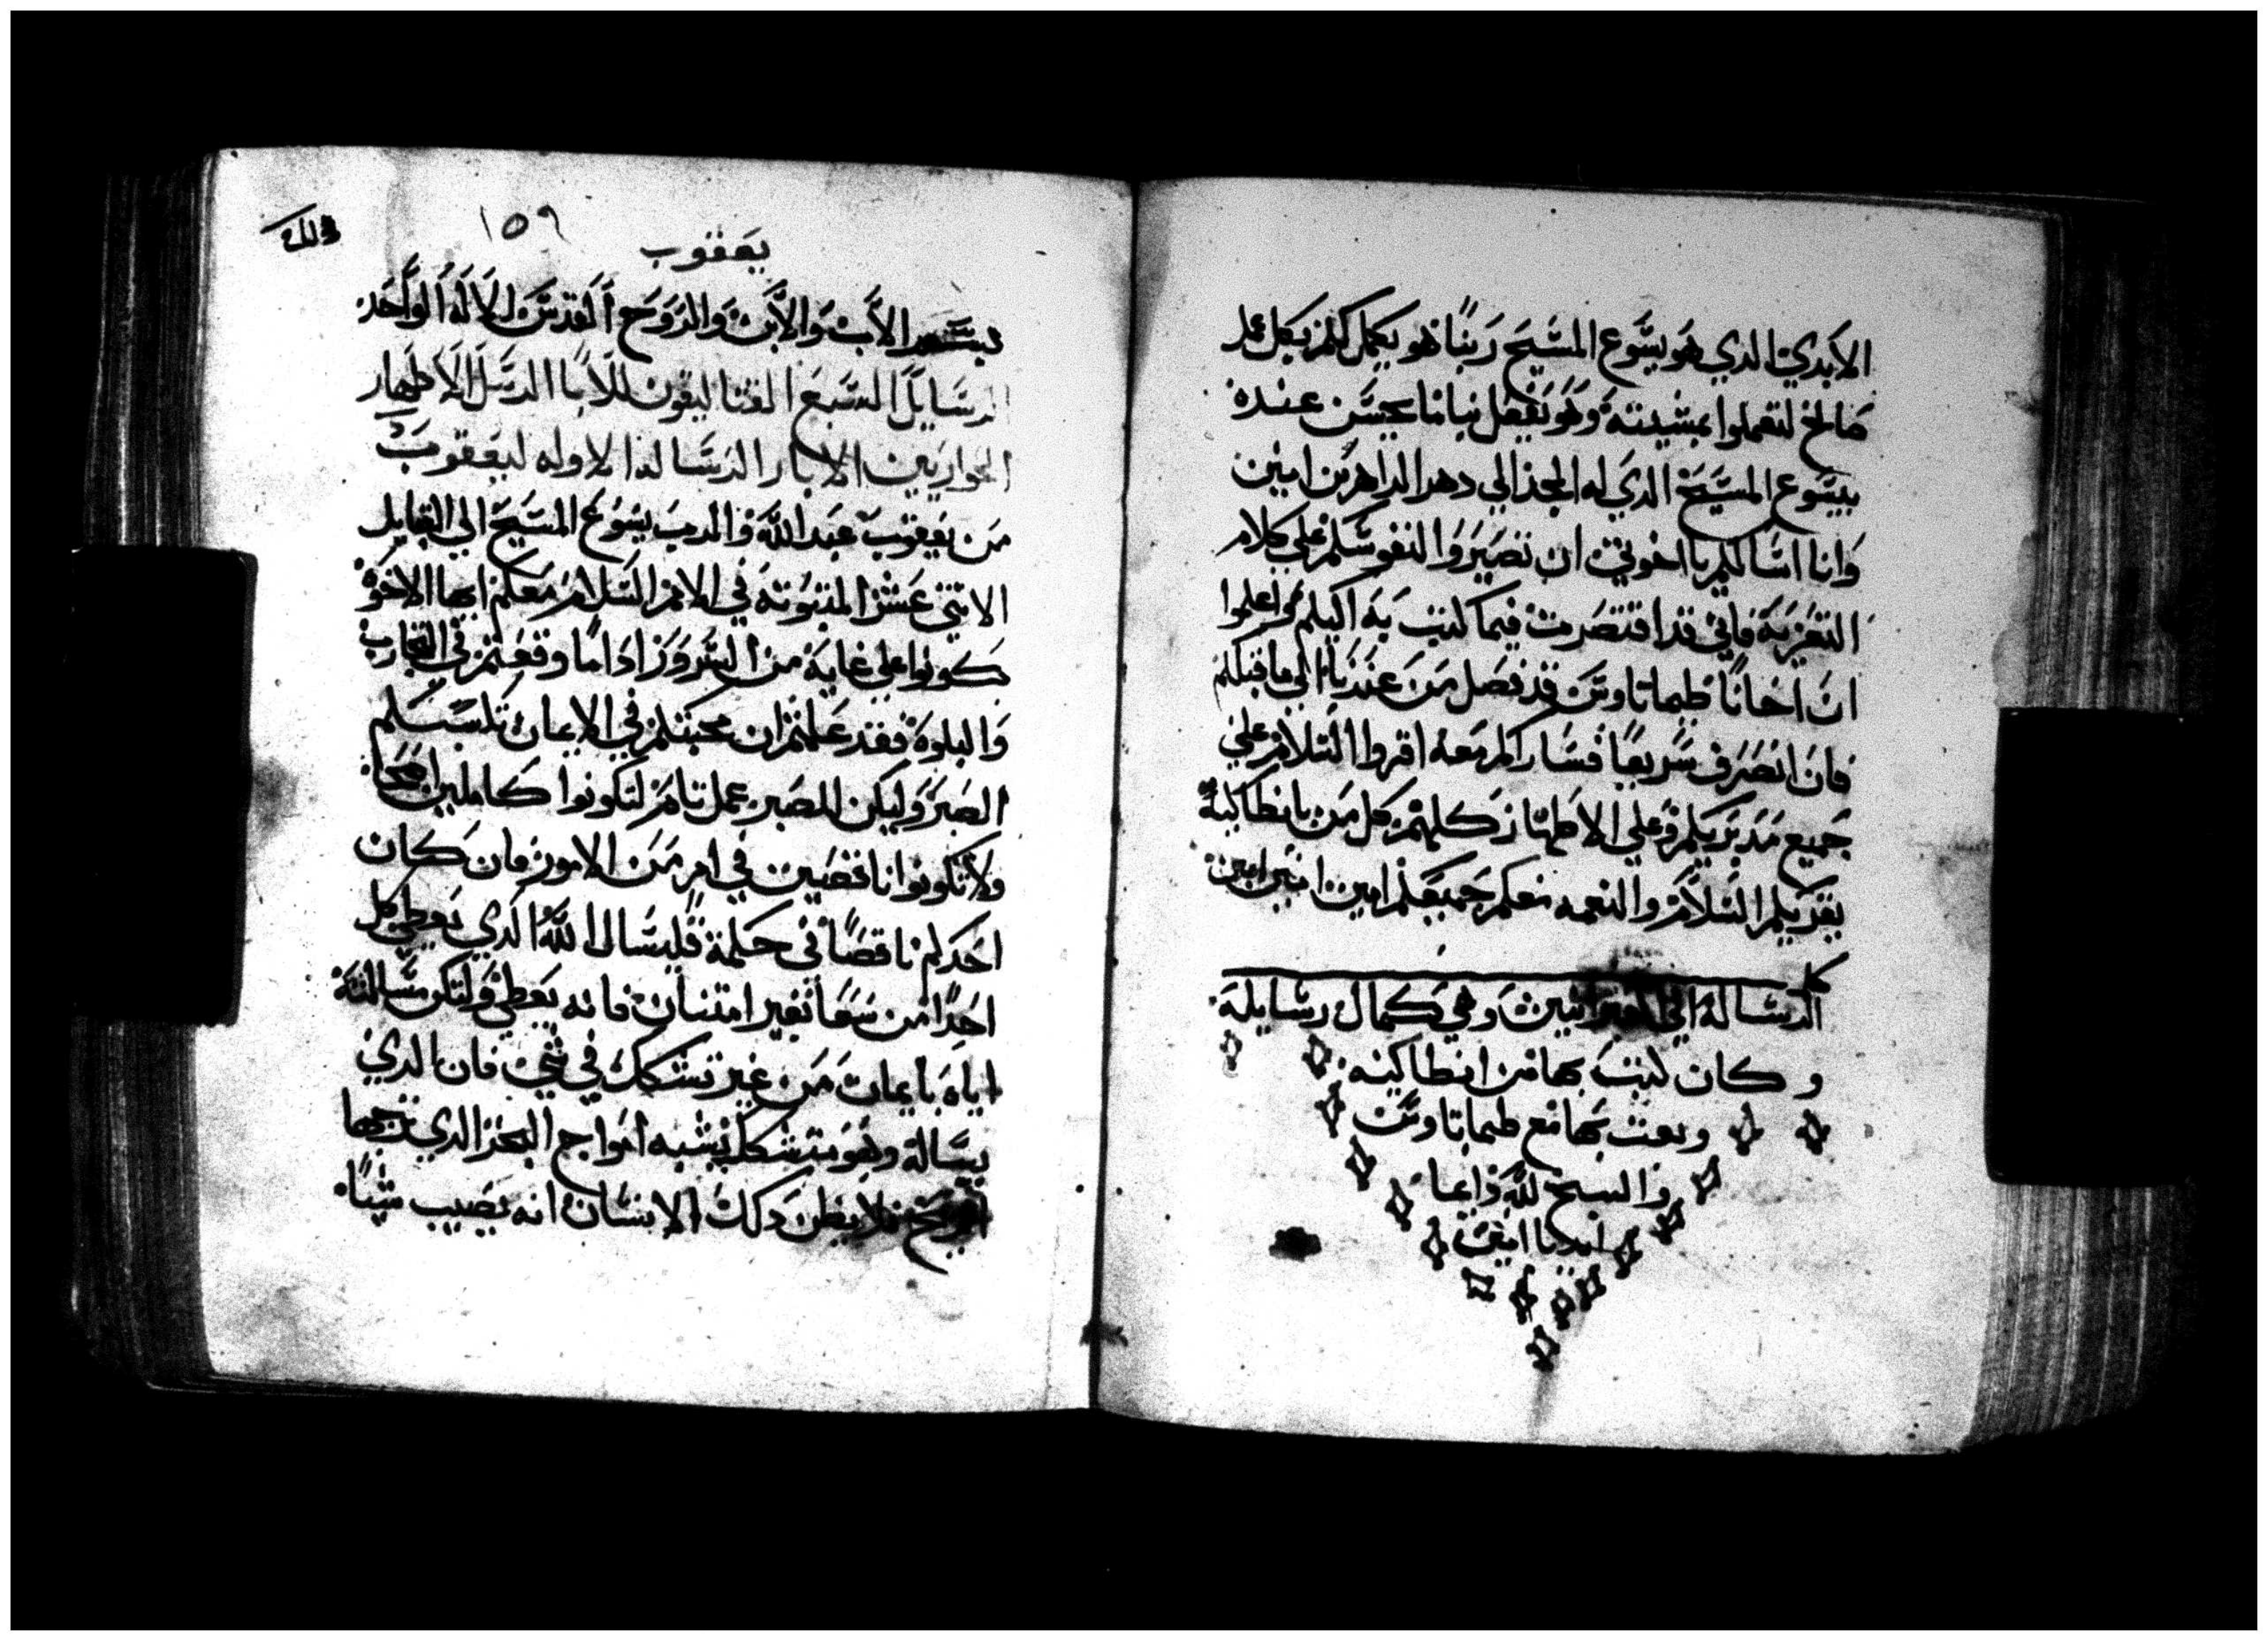 الابدي الدي هو يسوع المسيح ربنا هو يكمل كلم بكل عمل
صالح لتعملوا بمشيته وهو يفعل بنا ما يحسن عنده
بيسوع المسيح الدي له المجد الي دهر الداهرين امين
وانا اسالكم يا اخوتي ان تصيروا انفوسكم علي كلام
التعزيه فاني قد اقتصرت فيما كتبت به اليكم واعلموا
ان اخانا طيماتاوس قد فصل من عندنا الي ما قبلكم
فان انصرف سريعا فساراكم معه اقروا السلام علي
جميع مدبريكم وعلي الاطهار كلهم كل من بانطاكيه
يقريكم السلام والنعمه معكم جميعكم امين امين امين
كل
الرساله الي العبرانيين وهي كمال رسايله
وكان كتب بها من انطاكيه
وبعت بها مع طيماتاوس
والسبح لله دايما
ابديا امين
١٥٩
يعقوب
بسم الاب والابن والروح القدس الاله الواحد
الرسايل السبع القتاليقون للابا الرسل الاطهار
الحواريين الابرار الرساله الاوله ليعقوب
من يعقوب عبد الله والرب يسوع المسيح الي القبايل
الاتني عشر المتبوته في الامم السلام معكم ايها الاخوة
كونوا علي غاية من السرور ادا ما وقعتم في التجارب
والبلوة فقد علمتم ان محبتكم في الايمان تكسبكم
الصبر وليكن للصبر عمل تام لتكونوا كاملين اصحا
ولا تكونوا ناقصين في امر من الامور فان كان
احدكم ناقصا في حكمة فليسال الله الدي يعطي كل
احدا من سعا بغير امتنان فانه يعطي ولتكن مسالته
اياه بايمان من غير تشكك في شي فان الدي
يساله وهو متشكك يشبه امواج البحر الدي تزجها
الريح فلا يظن دلك الانسان انه يصيب شيا